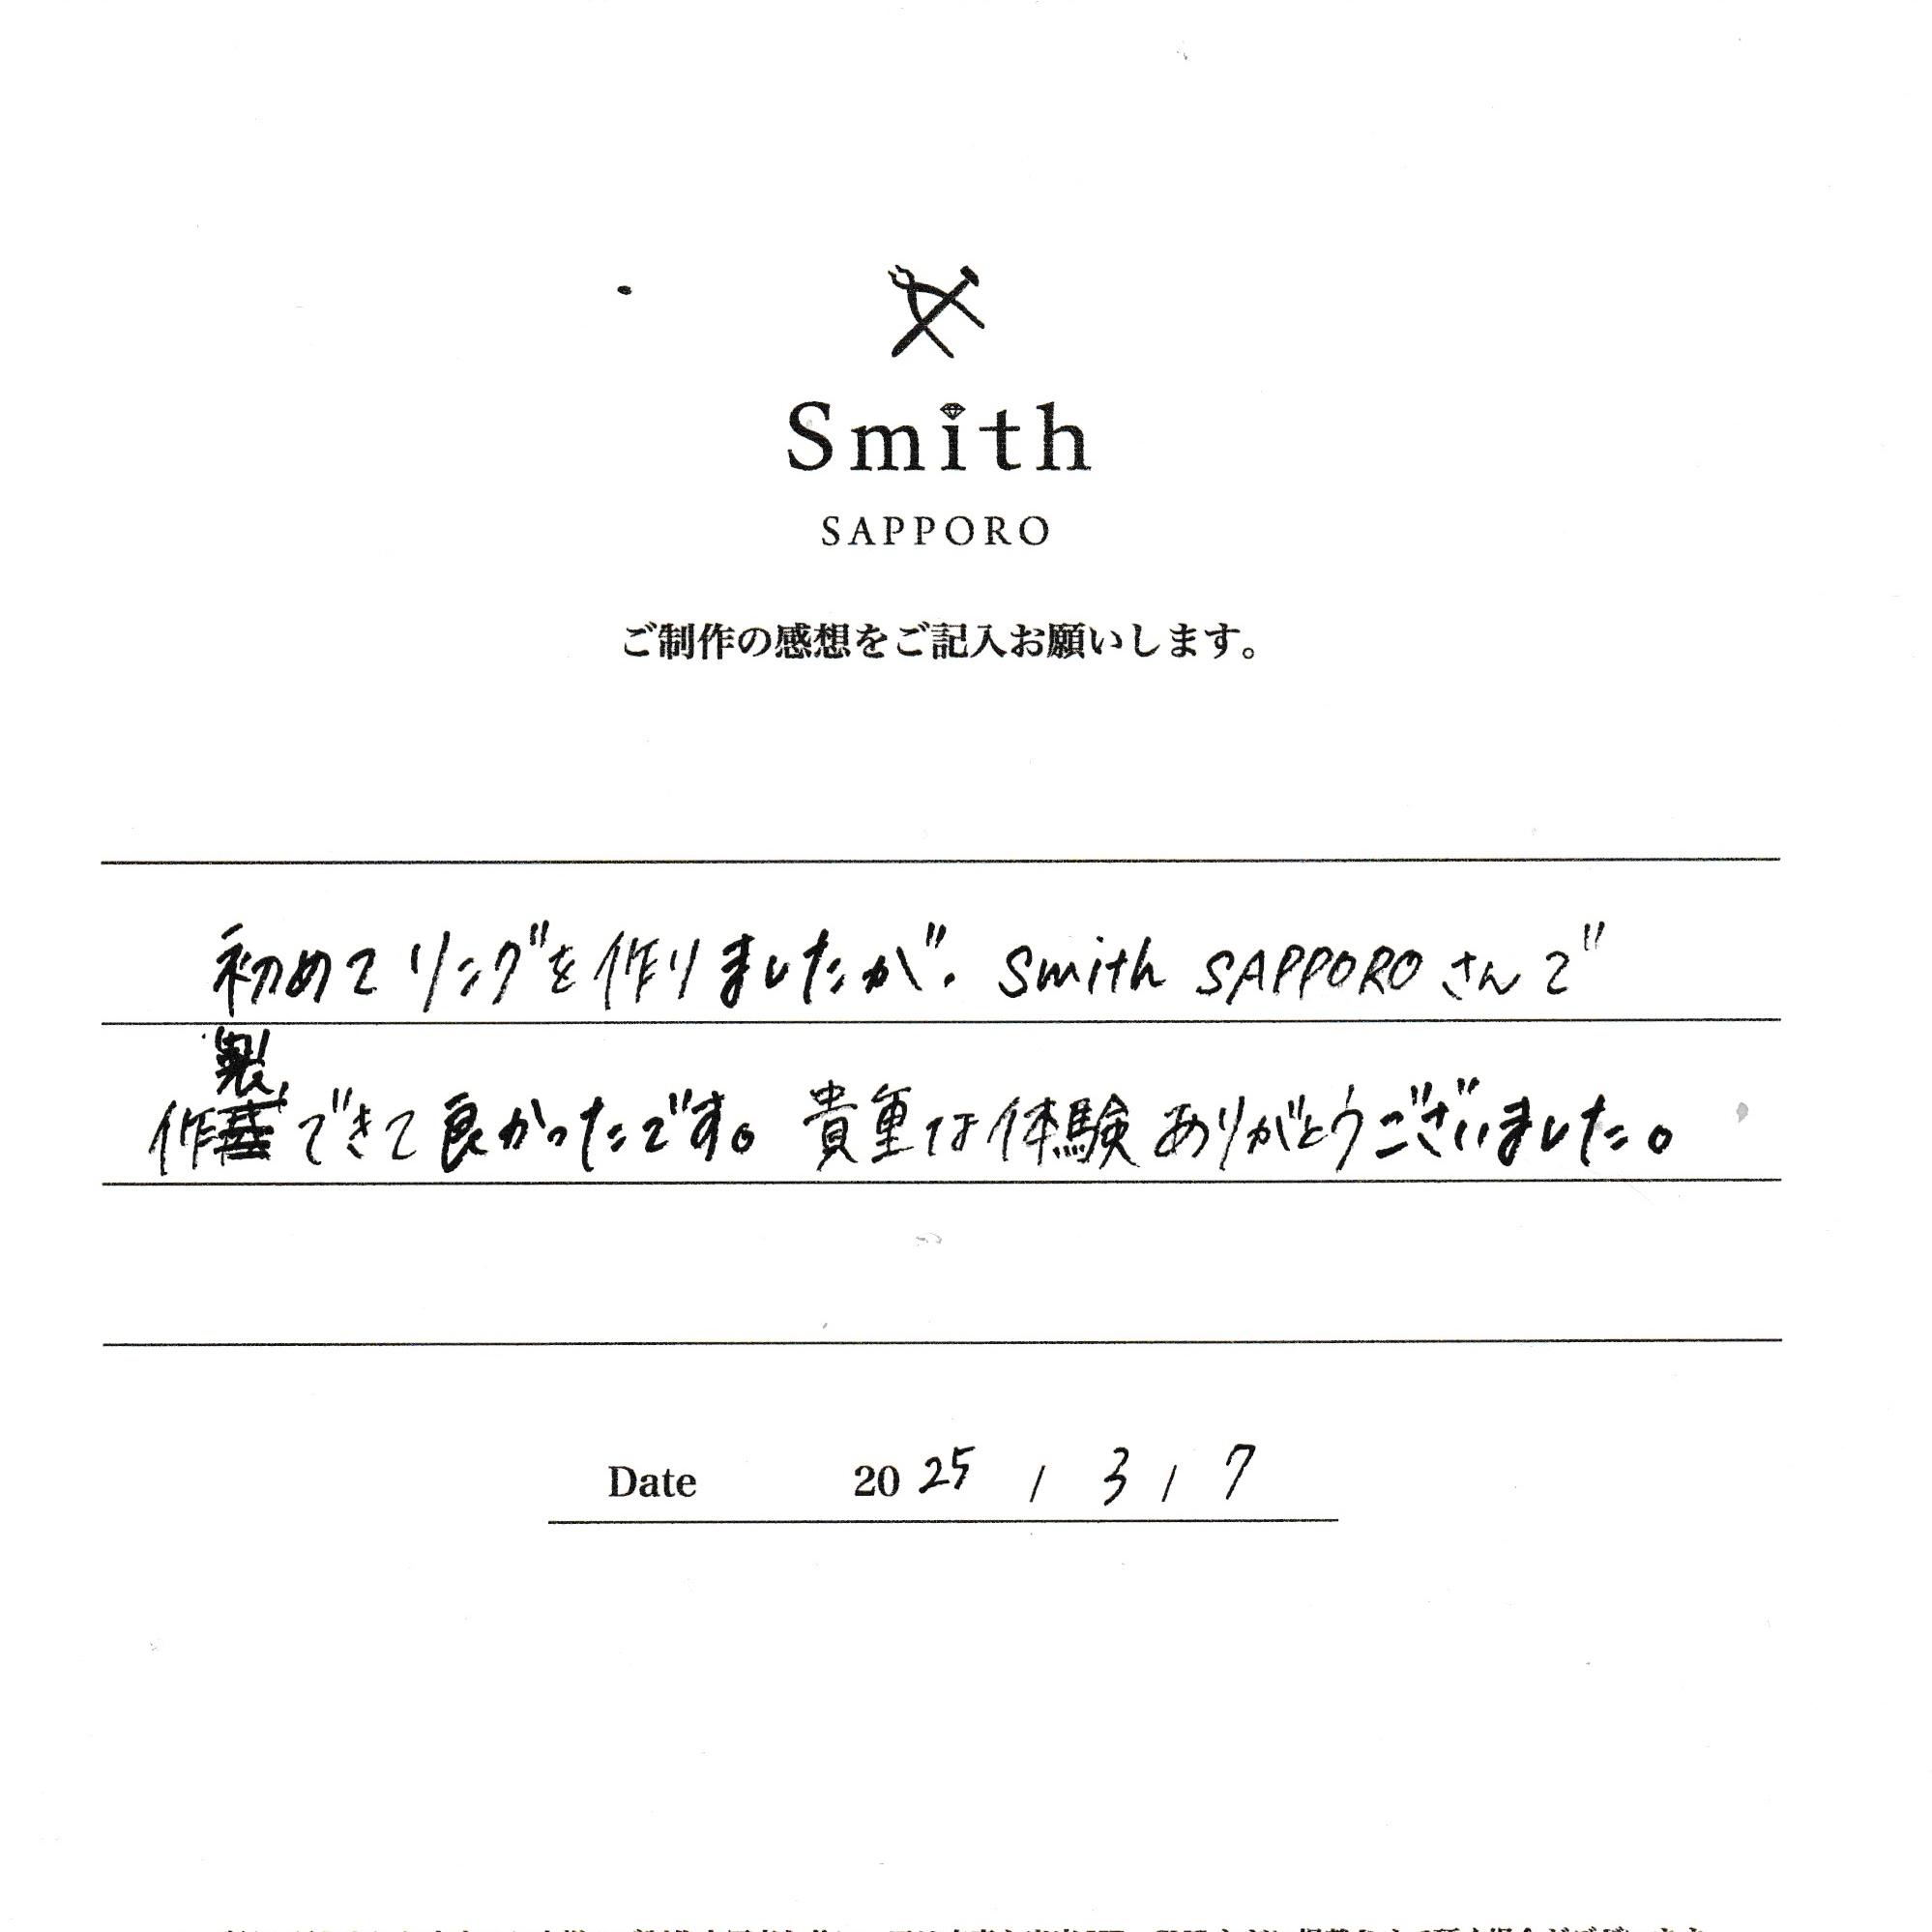 Smith
SAPPORO
ご制作の感想をご記入お願いします。
初めてリングを作りましたが、Smith SAPPOROさんで
作製できて良かったです。貴重な体験ありがとうございました。
Date 2025 / 3 / 7